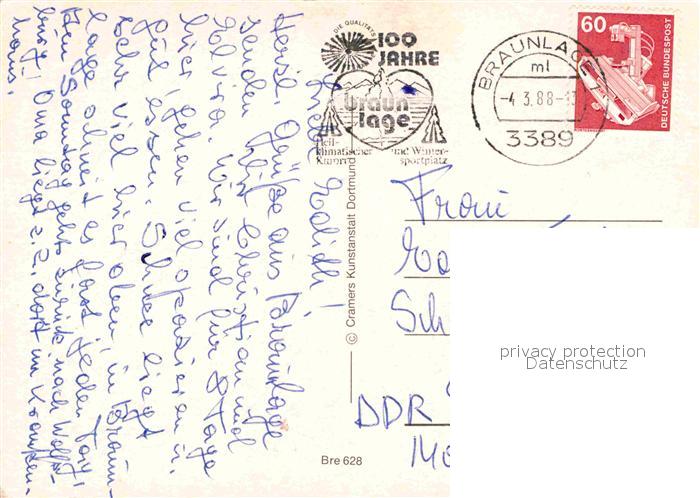 Liebe Edith!
Herzl. Grüße aus Braunlage
senden Dir Christian und
Elvira. Wir sind für 8 Tage
hier, gehen viel spazieren u.
gut essen. Schnee liegt
sehr viel hier oben, in Braun-
lage schneit es fast jeden Tag!
Am Sonntag geht's zurück nach Wolfs-
burg! Oma liegt z. Z. dort im Kranken-
haus.
DIE QUALITÄTS
100
JAHRE
braun
lage
Heil-
klimatischer
Kurort
und Winter-
sportplatz
BRAUNLAGE 1
ml
-4.3.88-1
3389
60
DEUTSCHE BUNDESPOST
© Cramers Kunstanstalt Dortmund
Frau
Sch
DDR
Bre 628
privacy protection
Datenschutz